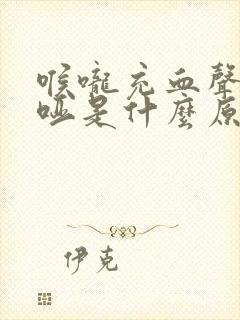 喉嚨充血聲
啞是什麼原
伊克